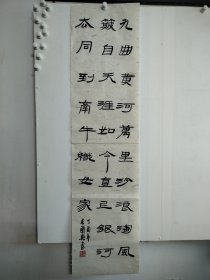 九曲黄河萬里沙浪淘風
簸自天涯如今直上銀河
去同到牽牛織女家
丁酉年